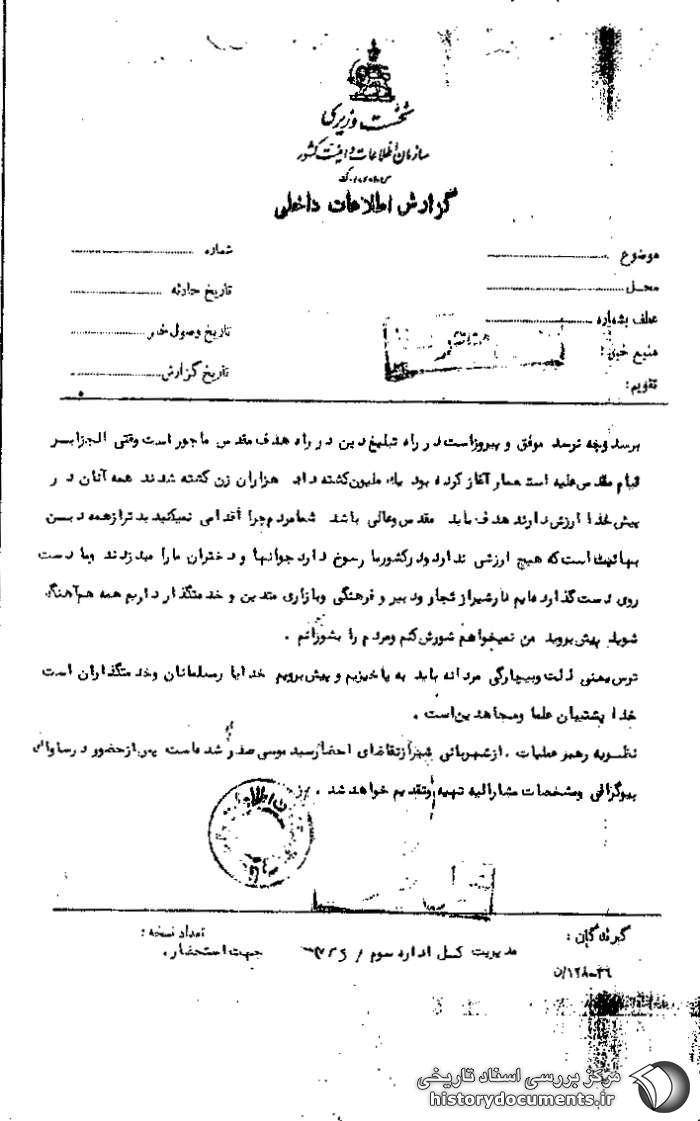 نخست وزیری
سازمان اطلاعات و امنیت کشور
گزارش اطلاعات داخلی
موضوع
شماره
محل
تاریخ حادثه
عطف بشماره
تاریخ وصول خبر
منبع خبر:
تاریخ گزارش
تقویم:
برسد و چه نرسد موفق و پیروز است در راه تبلیغ دین در راه هدف مقدس ماجور است وقتی الجزایر
قیام مقدس علیه استعمار آغاز کرده بود یک ملیون کشته داد هزاران زن کشته شدند همه آنان در
پیش خدا ارزش دارند هدف باید مقدس و عالی باشد شما مردم چرا اقدامی نمیکنید بدتر از همه دین
بهائیت است که هیچ ارزشی ندارد و در کشور ما رسوخ دارد جوانها و دختران ما را میدزدند و ما دست
روی دست گذارده‌ایم در شیراز تجار و دبیر و فرهنگی و بازاری متدین و خدمتگذار داریم همه هم‌آهنگ
شوید پیش بروید من نمیخواهم شورش کنم و مردم را بشورانم .
ترس یعنی ذلت و بیچارگی مردانه باید به پا خیزیم و پیش برویم خدا یار مسلمانان و خدمتگذاران است
خدا پشتیبان علما و مجاهدین است .
نظریه رهبر عملیات . از شهربانی شیراز تقاضای احضار سید موسی صدر شده است پس از حضور در ساواک
بیوگرافی و مشخصات مشارالیه تهیه و تقدیم خواهد شد .
گیرندگان :
مدیریت کل اداره سوم
تعداد نسخه :
جهت استحضار .
مرکز بررسی اسناد تاریخی
historydocuments.ir